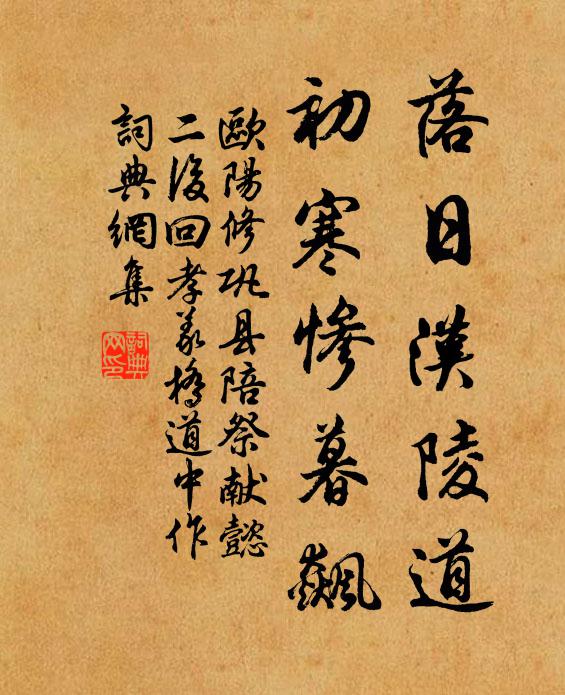 落日漢陵道
初寒慘暮飆
歐陽修巩县陪祭献懿
二後回孝义橋道中作
詞典網集
詞典
网印